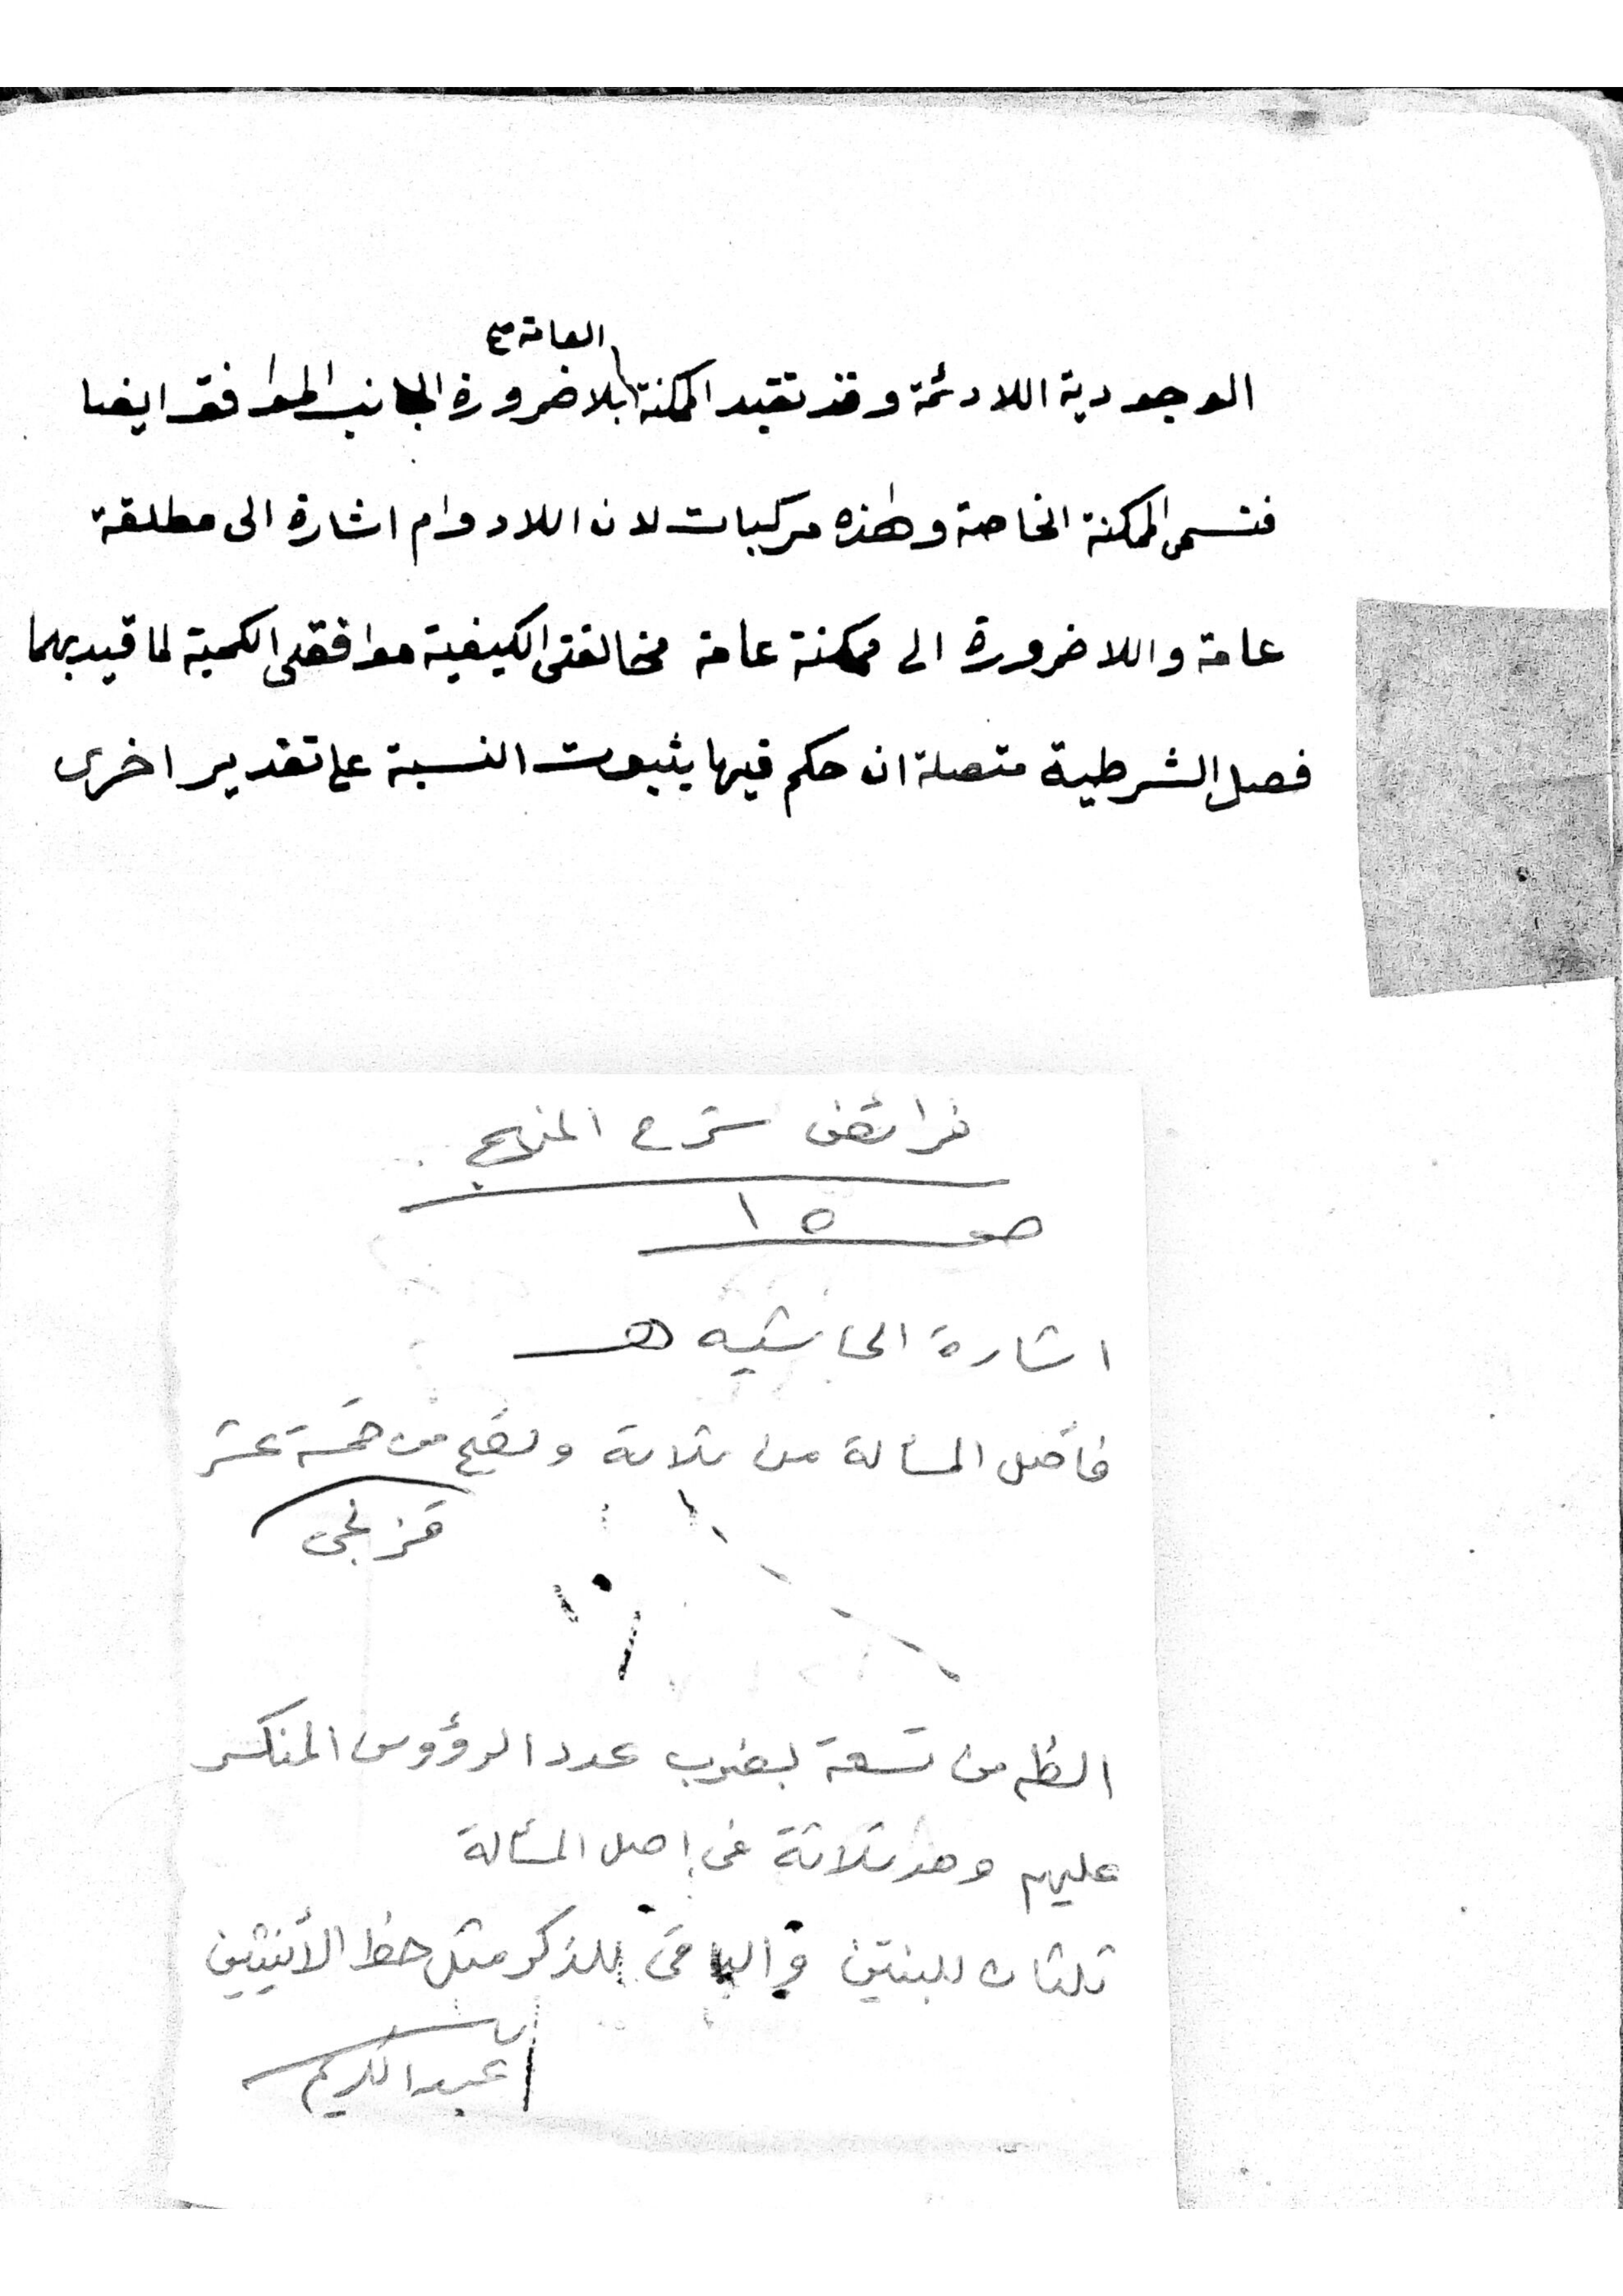 العامة صح
الوجودية اللادئمة وقد تقيد الممكنة بلاضرورة الجانب الموافق ايضا
فتسمى الممكنة الخاصة وهذه مركبات لان اللادوام اشارة الى مطلقة
عامة واللاضرورة الى ممكنة عامة مخالفتى الكيفية موافقتى الكمية لما قيد بهما
فصل الشرطية متصلة ان حكم فيها بثبوت النسبة على تقدير اخرى
فرائض شرح المنهج
صـ ١٥
اشارة الحاشيه هـ
فأصل المسألة من ثلاثة وتصح من خمسة عشر
قزلجى
الظ من تسعة لضرب عدد الرؤوس المنكسر
عليهم وهو ثلاثة فى اصل المسألة
ثلثان للبنتين و الباقى للذكر مثل حظ الأنثيين
عبدالكريم